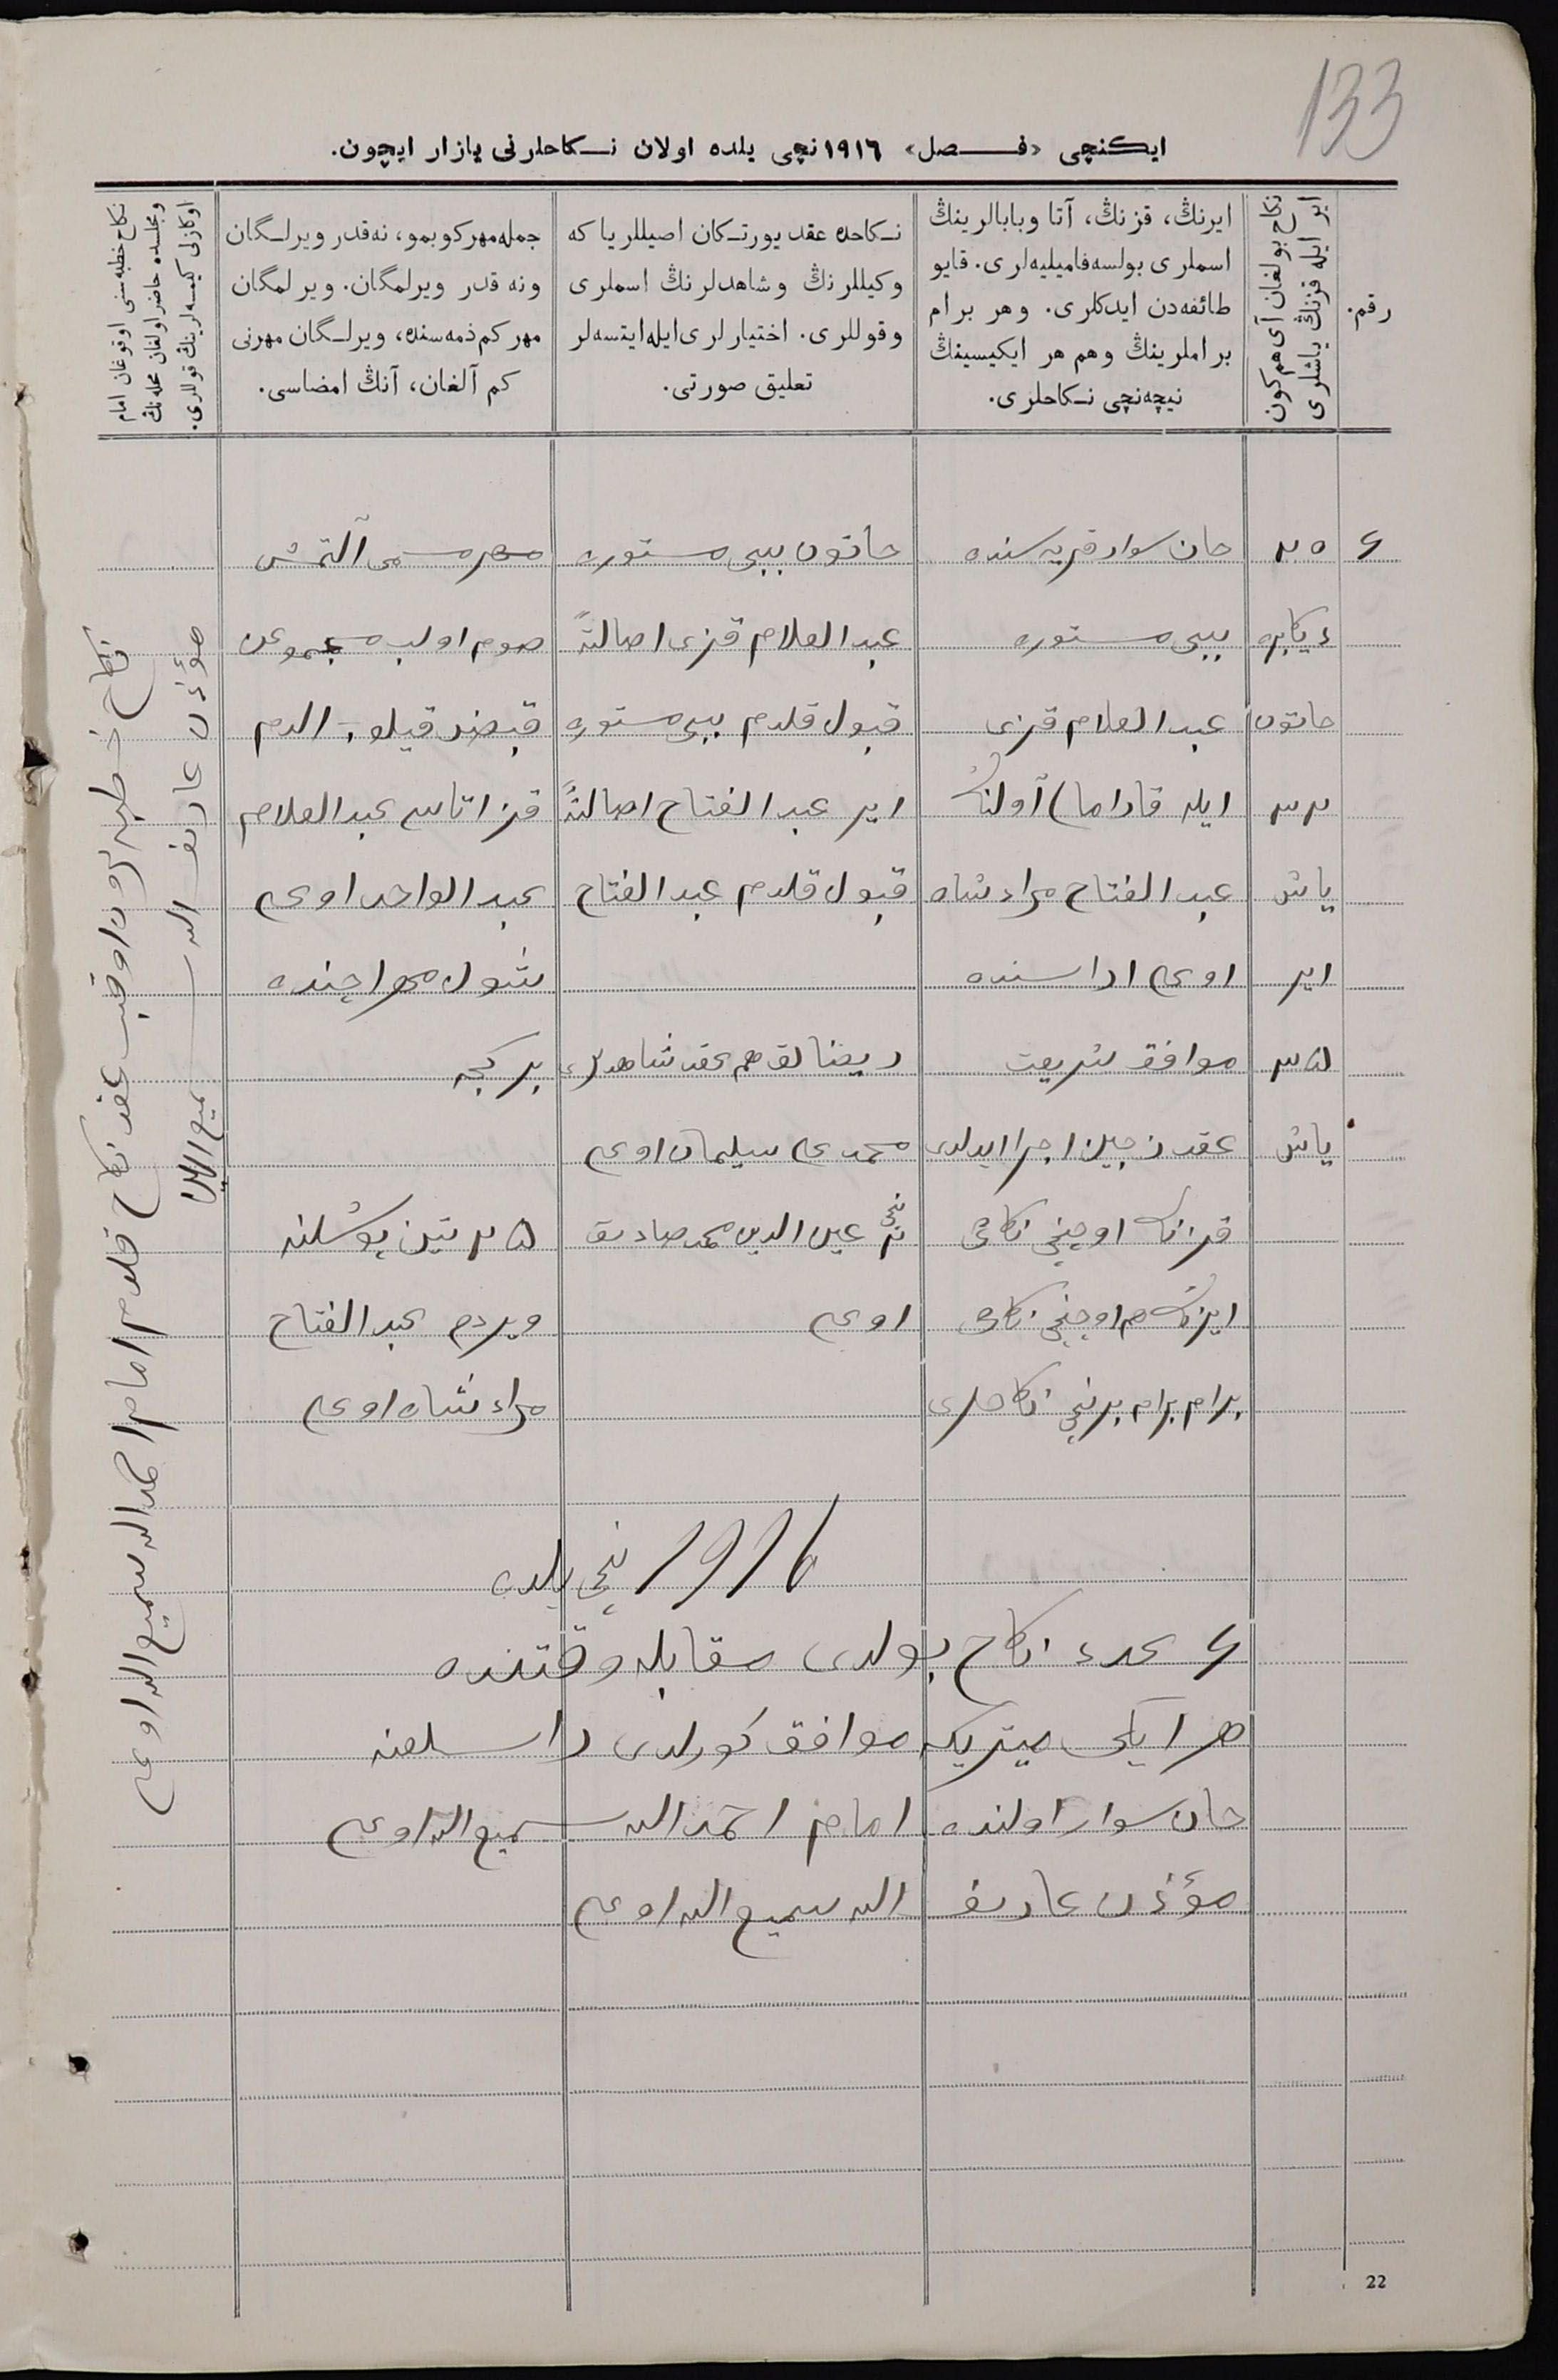 133
ایکنچی «فصل» ١٩١٦ نچی یلده اولان نکاحلرنی یازار ایچون.
رقم.
نکاح بولغان آی هم کون
ایر ایله قزنڭ یاشلری
ایرنڭ، قزنڭ، آتا وبابالرینڭ
اسملری بولسه فامیلیه‌لری. قایو
طائفه‌دن ایدکلری. وهر برام
براملرینڭ وهم هر ایکیسینڭ
نیچه‌نچی نکاحلری.
نکاحده عقد یورتکان اصیللر یا که
وکیللرنڭ وشاهدلرنڭ اسملری
وقوللری. اختیارلری ایله ایتسه‌لر
تعلیق صورتی.
جمله مهر کوبمو، نه‌قدر ویرلگان
ونه قدر ویرلمگان. ویرلمگان
مهر کم ذمه‌سنده، ویرلگان مهرنی
کم آلغان، آنڭ امضاسی.
نکاح خطبه‌سنی اوقوغان امام
ومجلسده حاضر اولغان محله‌نڭ
اوکازلی کیمسه‌لرینڭ قوللری.
٦
دیکابر
خاتون
یاش
ایر
٣٥
یاش
جان سوار قریه سنده
بیبی مستوره
عبد العلام قزی
ایله آولنڭ
عبد الفتاح مرادشاه
اوغلی اراسنده
موافق شریعت
عقد زوجین اجرا ایدلدی
قزنڭ اوچنچی نکاحی
ایرنڭ هم اوچنچی نکاحی
برام برام برنچی نکاحلری
خاتون بیبی مستوره
عبد العلام قزی اصالتاً
قبول قلدم بیبی مستوره
ایر عبد الفتاح اصالتاً
قبول قلدم عبد الفتاح
ریضالق هم عقد شاهدلری
محمدی سلیمان اوغلی
عین الدین محمد صادق
اوغلی
مهر مسمی آلتمش
صوم اولب مجموعن
قبض قیلوب آلدم
قز اتاسی عبد العلام
عبد الواحد اوغلی
شول مهر اچنده
بر کجه
٢٥ تین پوشلنه
ویردم عبد الفتاح
مرادشاه اوغلی
نکاح خطبه سن اوقب عقد نکاح قلدم امام احمد الله سمیع الله اوغلی
مؤذن عارف الله سمیع الله
1916 نچی یلده
٦ عدد نکاح بولدی مقابله وقتنده
هر ایکی میتریکه موافق کورلدی
جان سوار اولنده امام احمد الله سمیع الله اوغلی
مؤذن عارف الله سمیع الله اوغلی
22